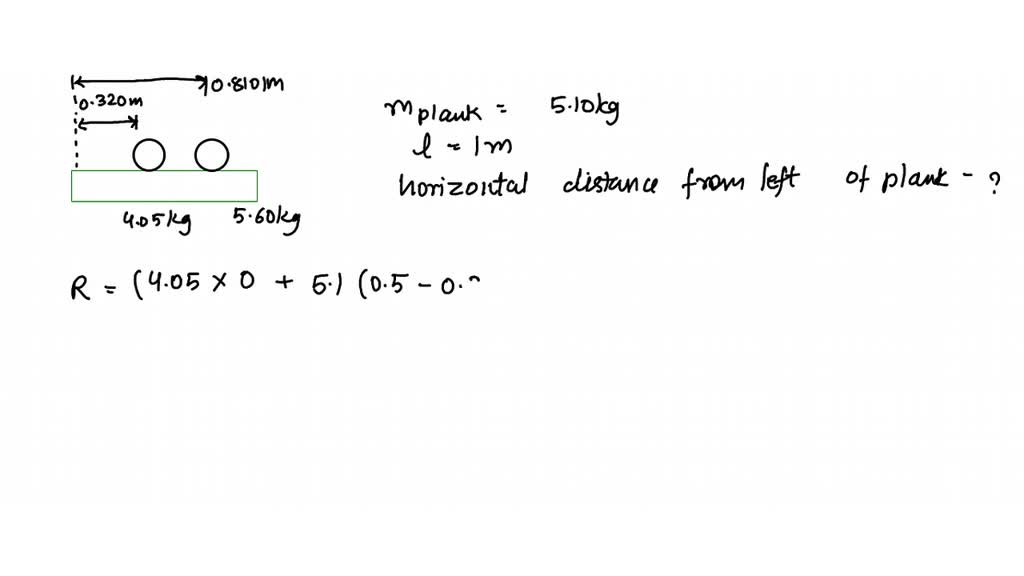 0.8101m
0.320m
m plank = 5.10kg
l = 1m
horizontal distance from left of plank - ?
4.05kg 5.60kg
R = (4.05 × 0 + 5.1 (0.5 - 0.